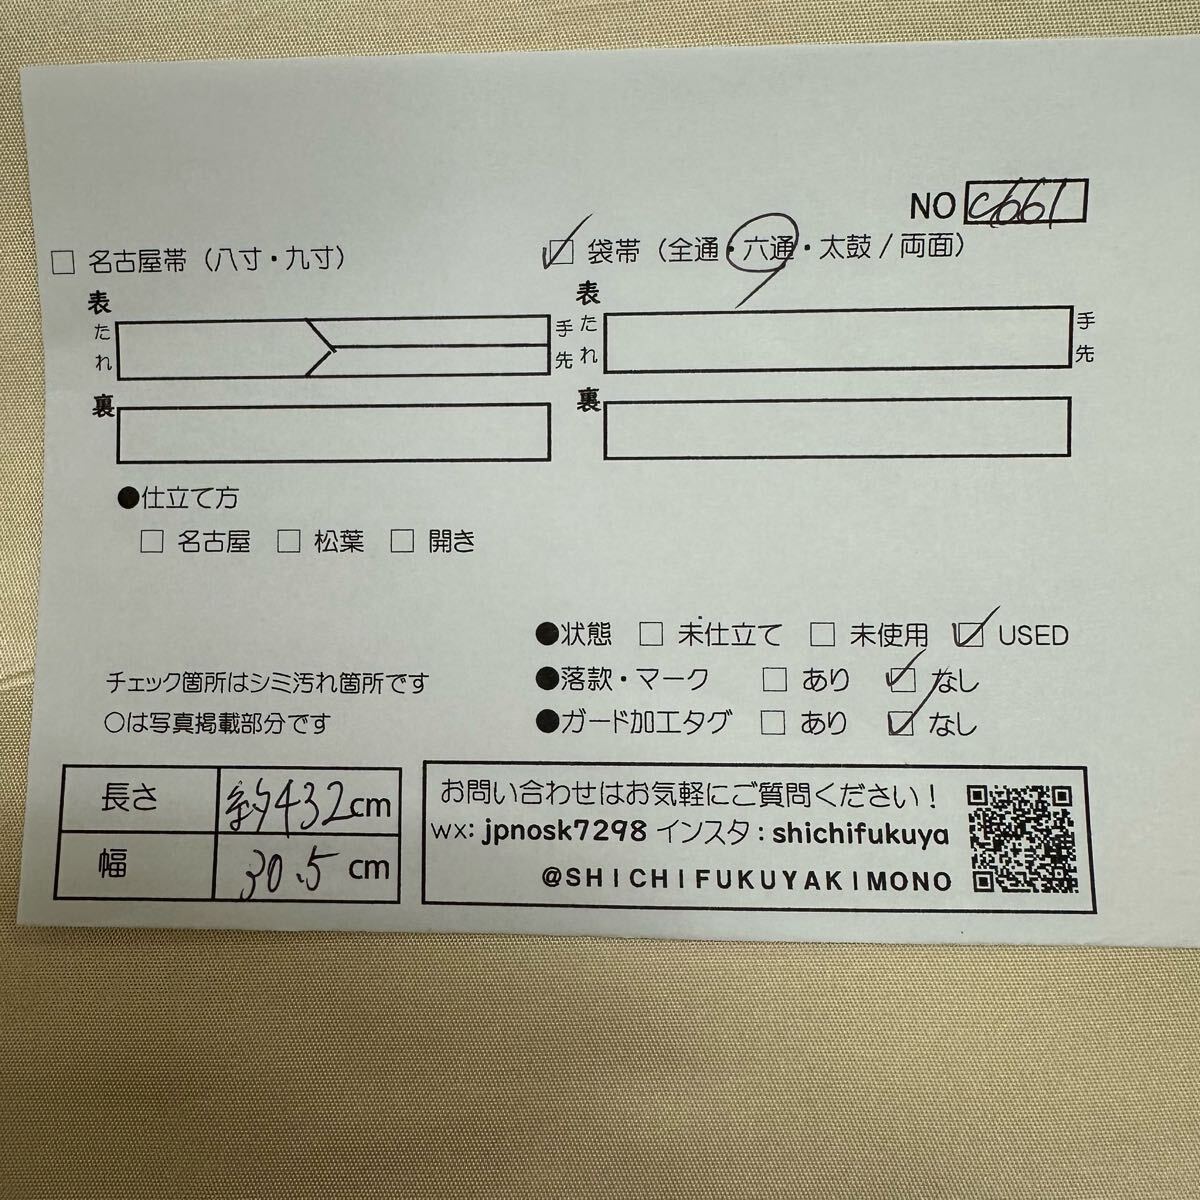 NO C661
□ 名古屋帯（八寸・九寸）
☑ 袋帯（全通・六通・太鼓/両面）
表
たれ
手先
裏
表
たれ
手先
裏
●仕立て方
□ 名古屋 □ 松葉 □ 開き
●状態 □ 未仕立て □ 未使用 ☑ USED
●落款・マーク □ あり ☑ なし
●ガード加工タグ □ あり ☑ なし
チェック箇所はシミ汚れ箇所です
○は写真掲載部分です
長さ 約432cm
幅 30.5cm
お問い合わせはお気軽にご質問ください！
wx: jpnosk7298 インスタ: shichifukuya
@SHICHIFUKUYAKIMONO